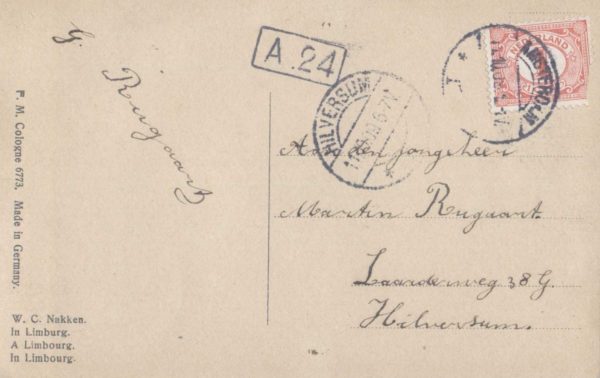 G.
Rugaart
A. 24
HILVERSUM
AMSTERDAM
NEDERLAND
Aan den jongeheer
Martin Rugaart.
Laarderweg 38 G.
Hilversum.
P. M. Cologne 6773. Made in Germany.
W. C. Nakken.
In Limburg.
A Limbourg.
In Limbourg.